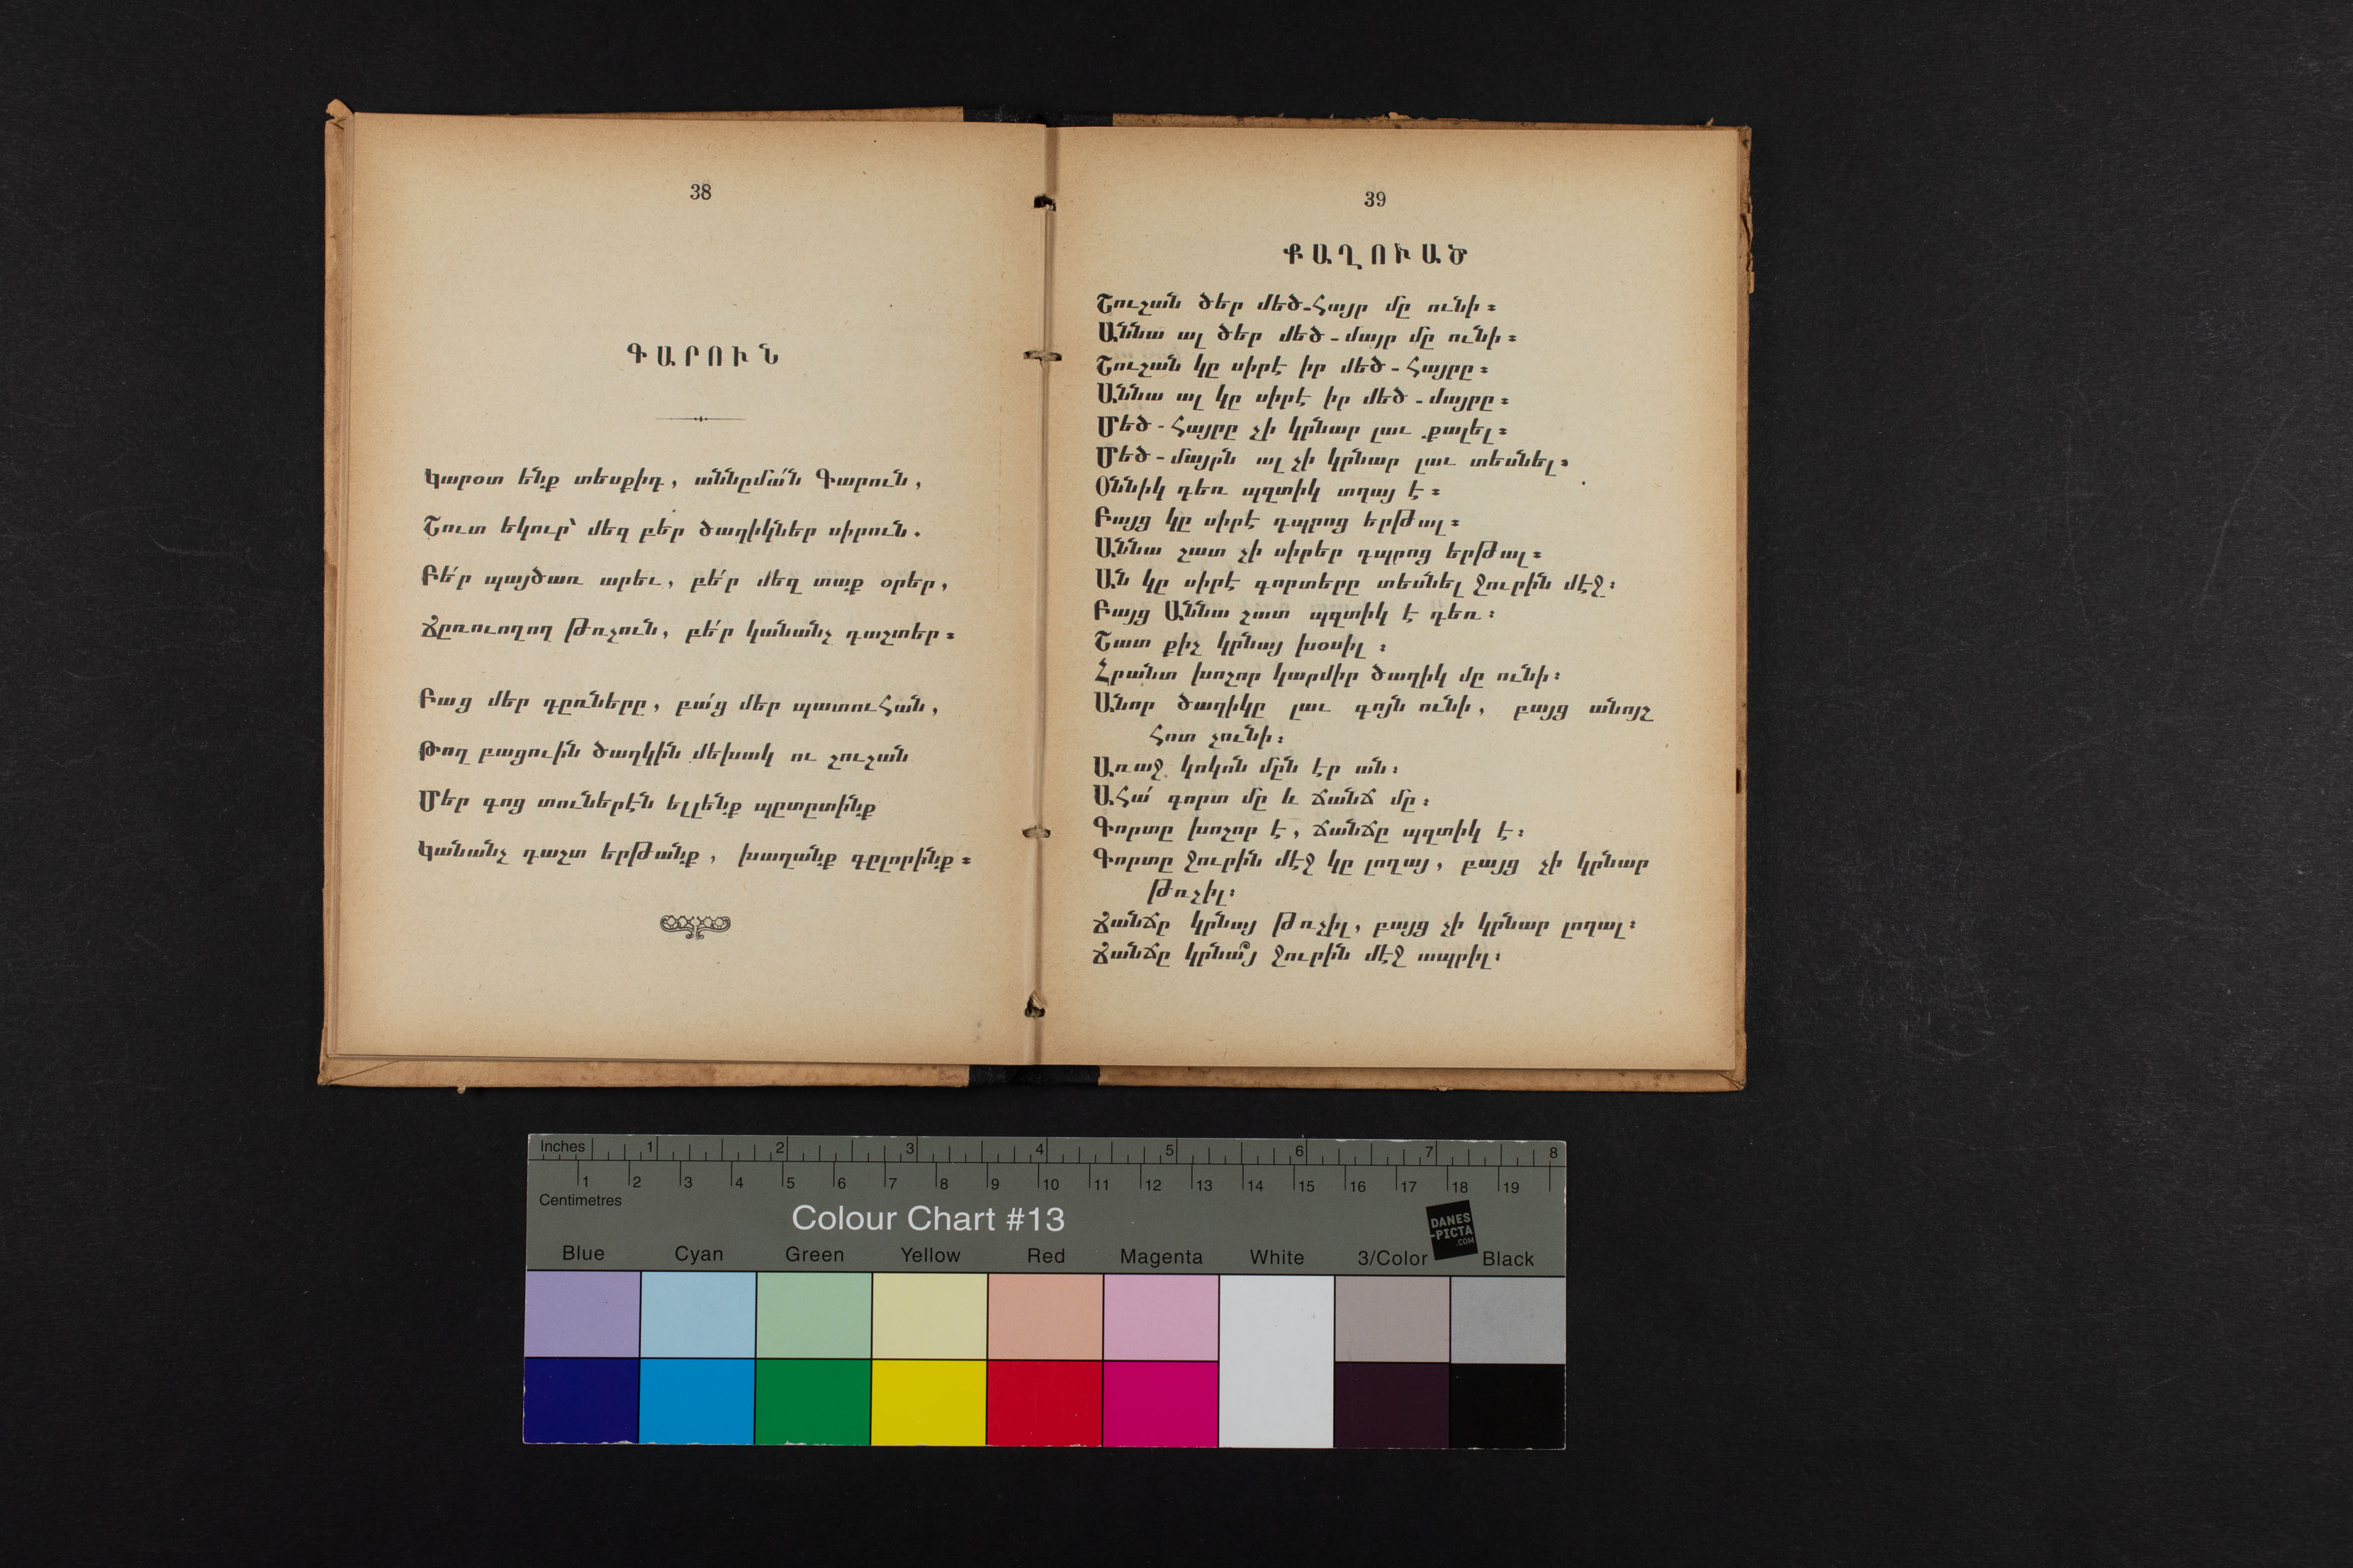 38
ԳԱՐՈՒՆ
Կարօտ ենք տեսքիդ, աննըմա՛ն Գարուն,
Շուտ եկուր՝ մեզ բեր ծաղիկներ սիրուն.
Բե՛ր պայծառ արեւ, բե՛ր մեզ տաք օրեր,
Ճըռուողող թռչուն, բե՛ր կանանչ դաշտեր։
Բաց մեր դըռները, բա՛ց մեր պատուհան,
Թող բացուին ծաղկին մեխակ ու շուշան
Մեր գոց տուներէն ելլենք պըտըտինք
Կանանչ դաշտ երթանք, խաղանք գըլորինք։
39
ՔԱՂՈՒԱԾ
Շուշան ծեր մեծ-հայր մը ունի։
Աննա ալ ծեր մեծ-մայր մը ունի։
Շուշան կը սիրէ իր մեծ-հայրը։
Աննա ալ կը սիրէ իր մեծ-մայրը։
Մեծ-հայրը չի կրնար լաւ քալել։
Մեծ-մայրն ալ չի կրնար լաւ տեսնել։
Օննիկ դեռ պզտիկ տղայ է։
Բայց կը սիրէ դպրոց երթալ։
Աննա շատ չի սիրեր դպրոց երթալ։
Ան կը սիրէ գորտերը տեսնել ջուրին մէջ։
Բայց Աննա շատ պզտիկ է դեռ։
Շատ քիչ կրնայ խօսիլ։
Հրանտ խոշոր կարմիր ծաղիկ մը ունի։
Անոր ծաղիկը լաւ գոյն ունի, բայց անոյշ
հոտ չունի։
Առաջ կոկոն մըն էր ան։
Ահա՛ գորտ մը և ճանճ մը։
Գորտը խոշոր է, ճանճը պզտիկ է։
Գորտը ջուրին մէջ կը լողայ, բայց չի կրնար
թռչիլ։
Ճանճը կրնայ թռչիլ, բայց չի կրնար լողալ։
Ճանճը կրնա՞յ ջուրին մէջ ապրիլ։
Inches 1 2 3 4 5 6 7 8
1 2 3 4 5 6 7 8 9 10 11 12 13 14 15 16 17 18 19
Centimetres
Colour Chart #13
DANES
-PICTA
.COM
Blue Cyan Green Yellow Red Magenta White 3/Color Black